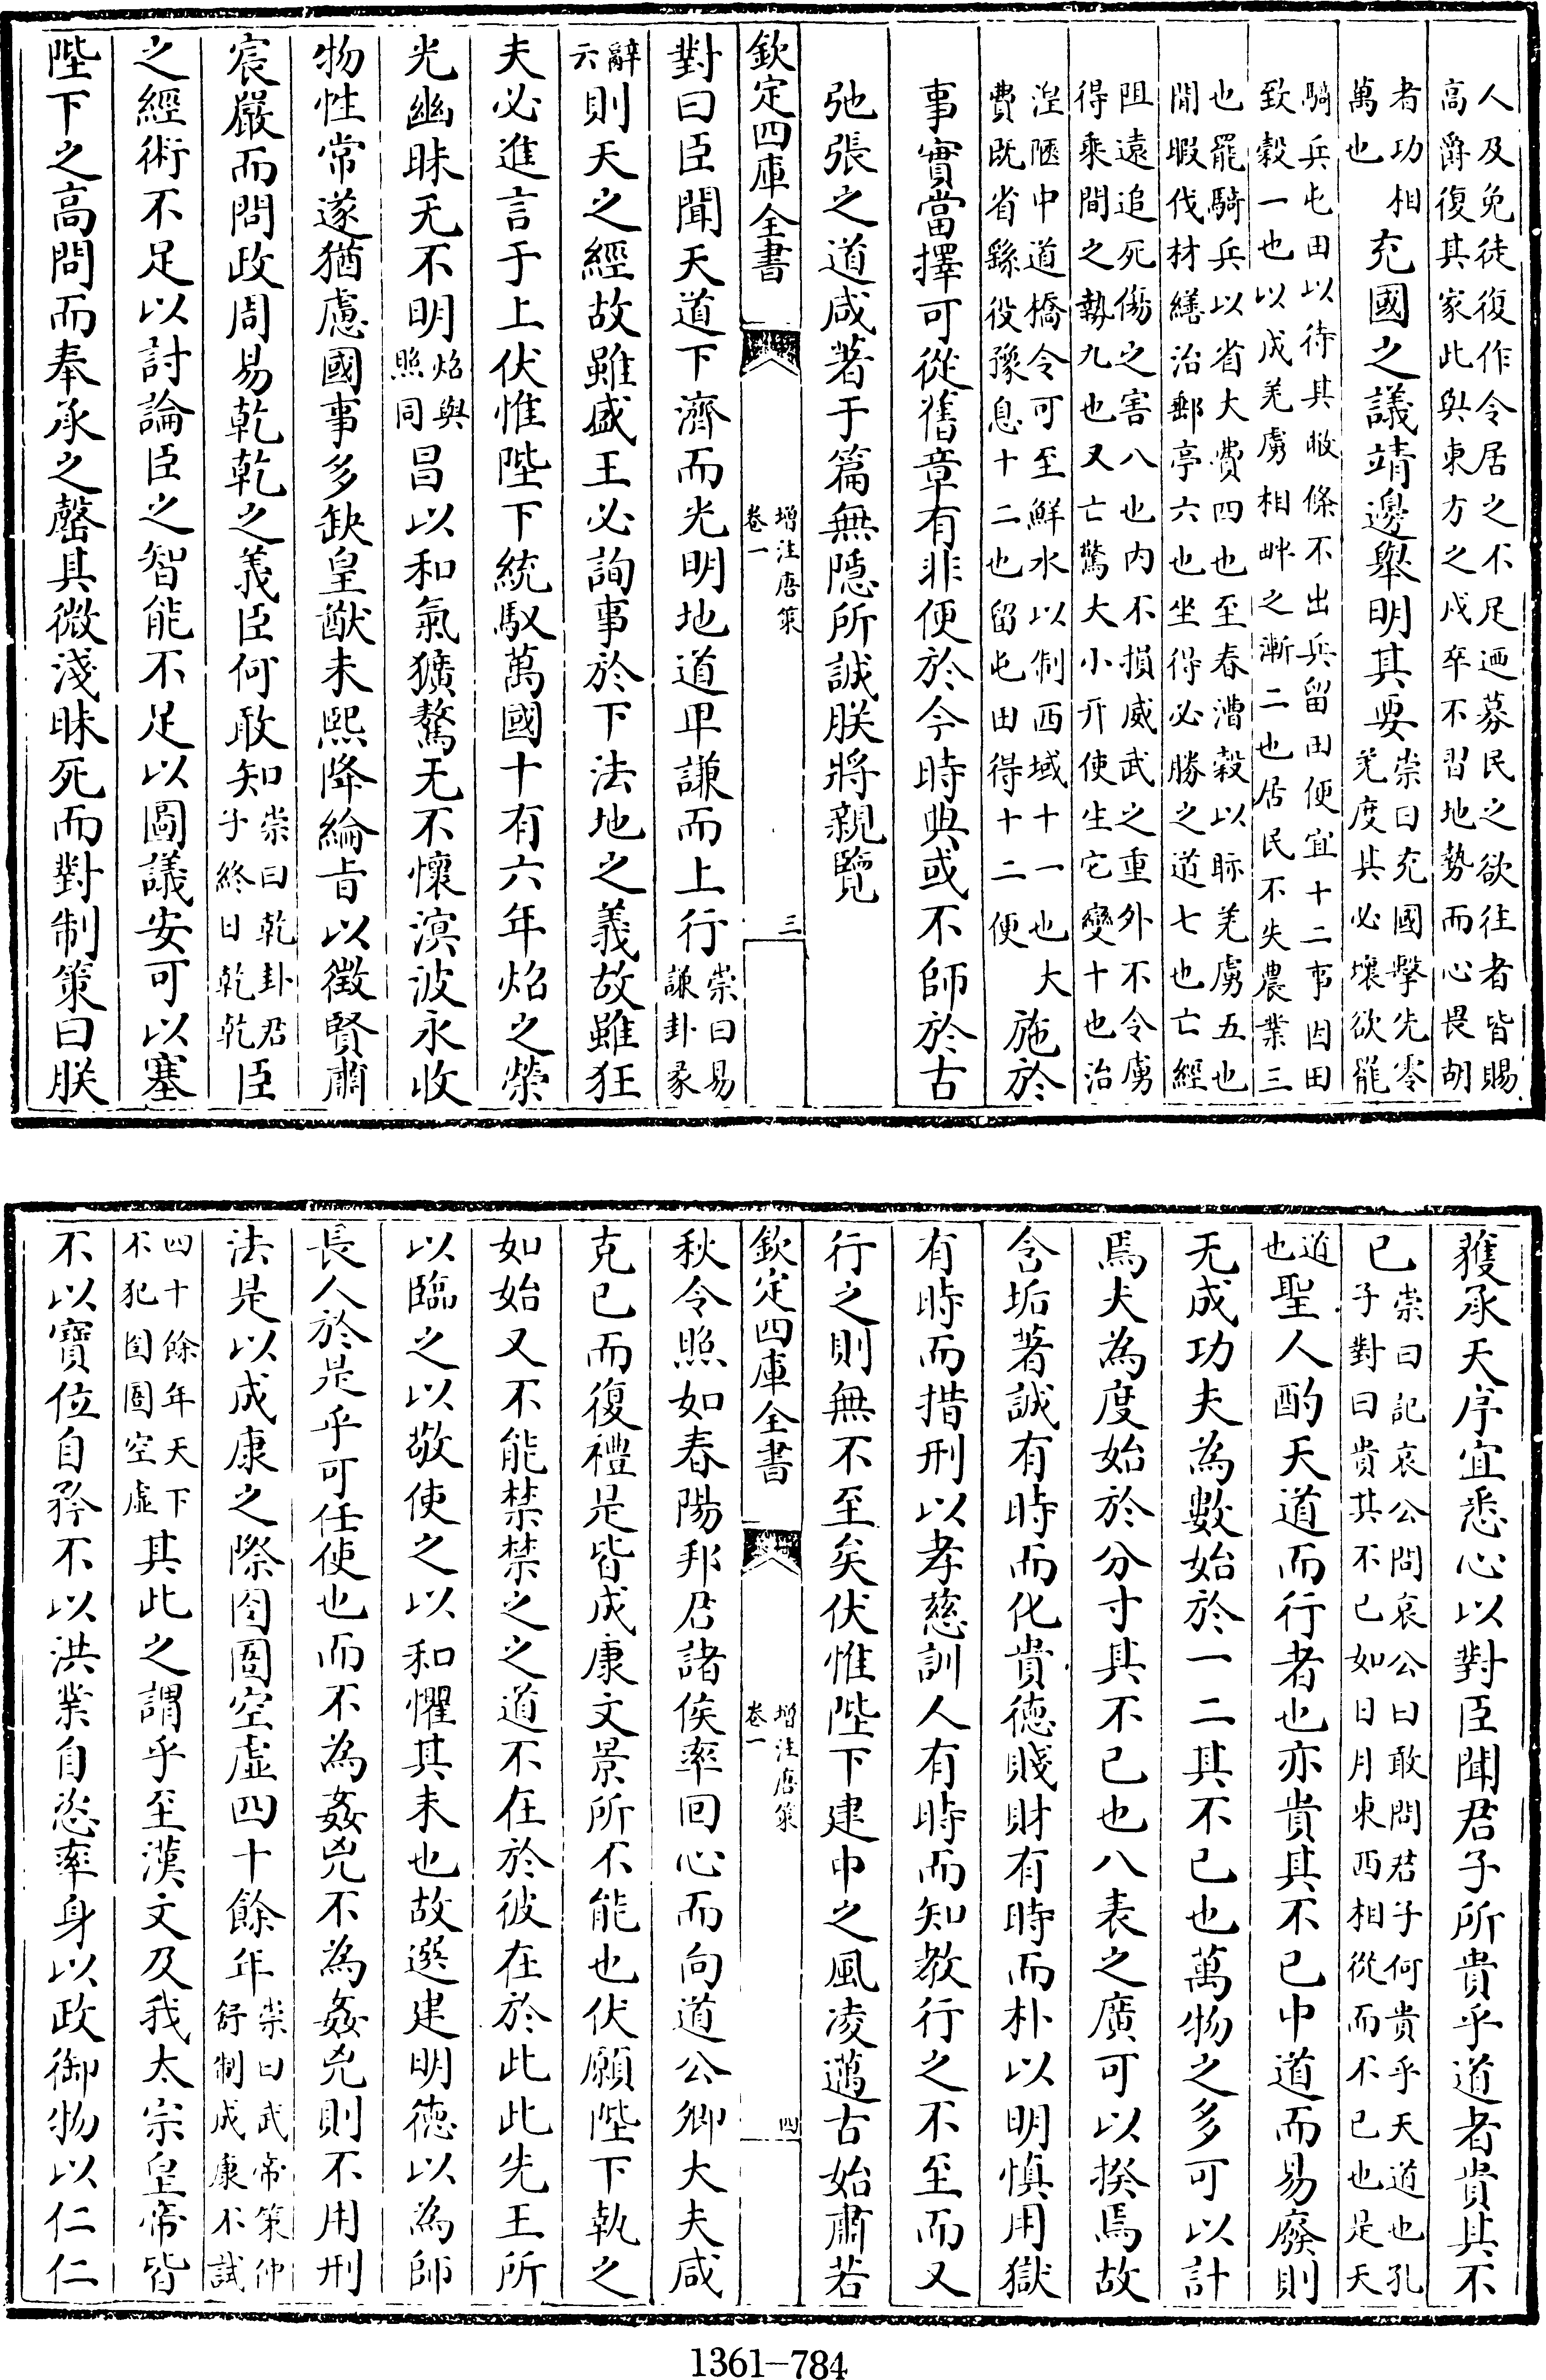 人及免徒復作令居之不足廼募民之欲往者皆賜
高爵復其家此與東方之戍卒不習地勢而心畏胡
者功相
萬也
充國之議靖邊舉明其要
崇曰充國擊先零
羌度其必壞欲罷
騎兵屯田以待其敝條不出兵留田便宜十二事因田
致穀一也以成羌虜相畔之漸二也居民不失農業三
也罷騎兵以省大費四也至春漕穀以眎羌虜五也
閒暇伐材繕治郵亭六也坐得必勝之道七也亡經
阻遠追死傷之害八也内不損威武之重外不令虜
得乘間之勢九也又亡驚大小幵使生它變十也治
湟陿中道橋令可至鮮水以制西域十一也大
費既省繇役豫息十二也留屯田得十二便
施於
事實當擇可從舊章有非便於今時典或不師於古
弛張之道咸著于篇無隱所誠朕將親覽
欽定四庫全書
增注唐策
卷一
三
對曰臣聞天道下濟而光明地道卑謙而上行
崇曰易
謙卦彖
辭
云
則天之經故雖盛王必詢事於下法地之義故雖狂
夫必進言于上伏惟陛下統馭萬國十有六年焰之榮
光幽昧无不明
焰與
照同
昌以和氣獷驁无不懷溟波永收
物性常遂猶慮國事多缺皇猷未熙降綸旨以徵賢肅
宸嚴而問政周易乾乾之義臣何敢知
崇曰乾卦君
子終日乾乾
臣
之經術不足以討論臣之智能不足以圖議安可以塞
陛下之高問而奉承之罄其微淺昧死而對制策曰朕
獲承天序宜悉心以對臣聞君子所貴乎道者貴其不
已
崇曰記哀公問哀公曰敢問君子何貴乎天道也孔
子對曰貴其不已如日月東西相從而不已也是天
道
也
聖人酌天道而行者也亦貴其不已中道而易廢則
无成功夫為數始於一二其不已也萬物之多可以計
焉夫為度始於分寸其不已也八表之廣可以揆焉故
含垢著誠有時而化貴德賤財有時而朴以明慎用獄
有時而措刑以孝慈訓人有時而知教行之不至而又
行之則無不至矣伏惟陛下建中之風凌邁古始肅若
欽定四庫全書
增注唐策
卷一
四
秋令照如春陽邦君諸侯率回心而向道公卿大夫咸
克已而復禮是皆成康文景所不能也伏願陛下執之
如始又不能禁禁之之道不在於彼在於此此先王所
以臨之以敬使之以和懼其未也故選建明德以為師
長人於是乎可任使也而不為姦兇不為姦兇則不用刑
法是以成康之際囹圄空虛四十餘年
崇曰武帝策仲
舒制成康不試
四十餘年天下
不犯囹圄空虛
其此之謂乎至漢文及我太宗皇帝皆
不以寶位自矜不以洪業自恣率身以政御物以仁仁
1361-784